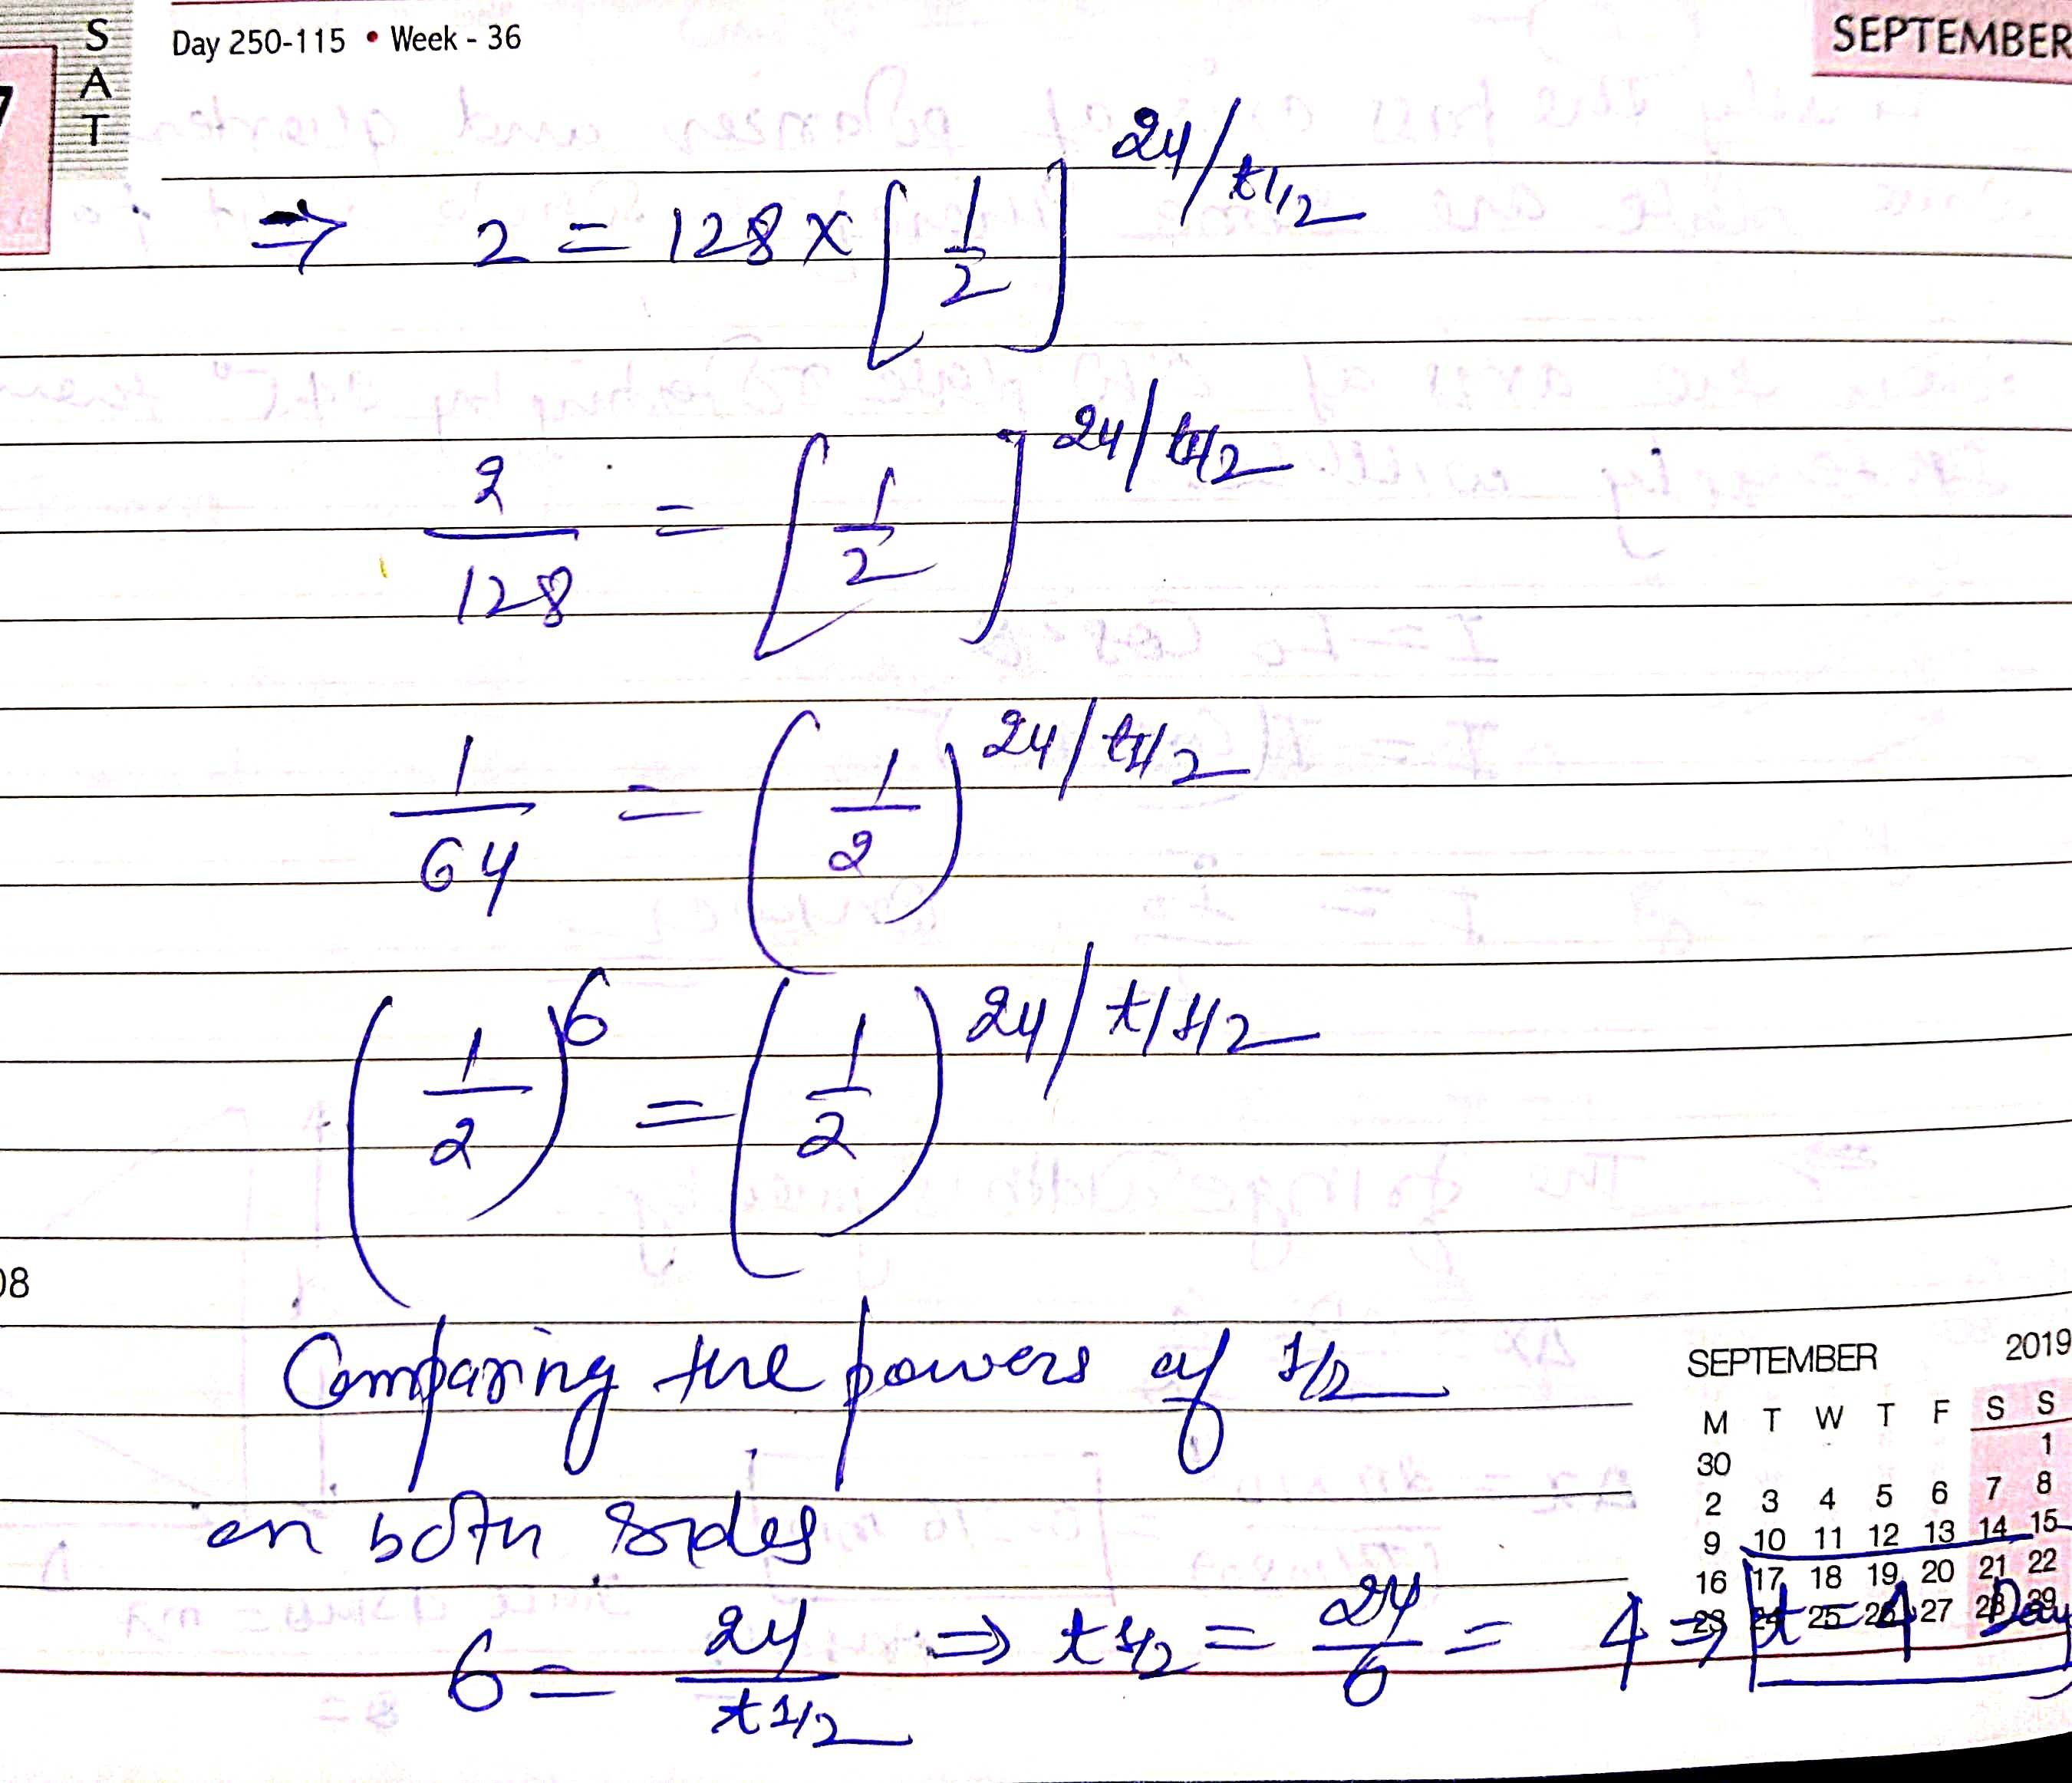 S
A
T
7
Day 250-115 • Week - 36
SEPTEMBER
⇒ 2 = 128 × [1/2]^24/t1/2
2/128 = [1/2]^24/t1/2
1/64 = (1/2)^24/t1/2
(1/2)^6 = (1/2)^24/t1/2
08
Comparing the powers of 1/2
on both sides
6 = 24/t1/2 ⇒ t1/2 = 24/6 = 4 ⇒ t = 4 Day
SEPTEMBER 2019
M T W T F S S
30 1
2 3 4 5 6 7 8
9 10 11 12 13 14 15
16 17 18 19 20 21 22
23 24 25 26 27 28 29